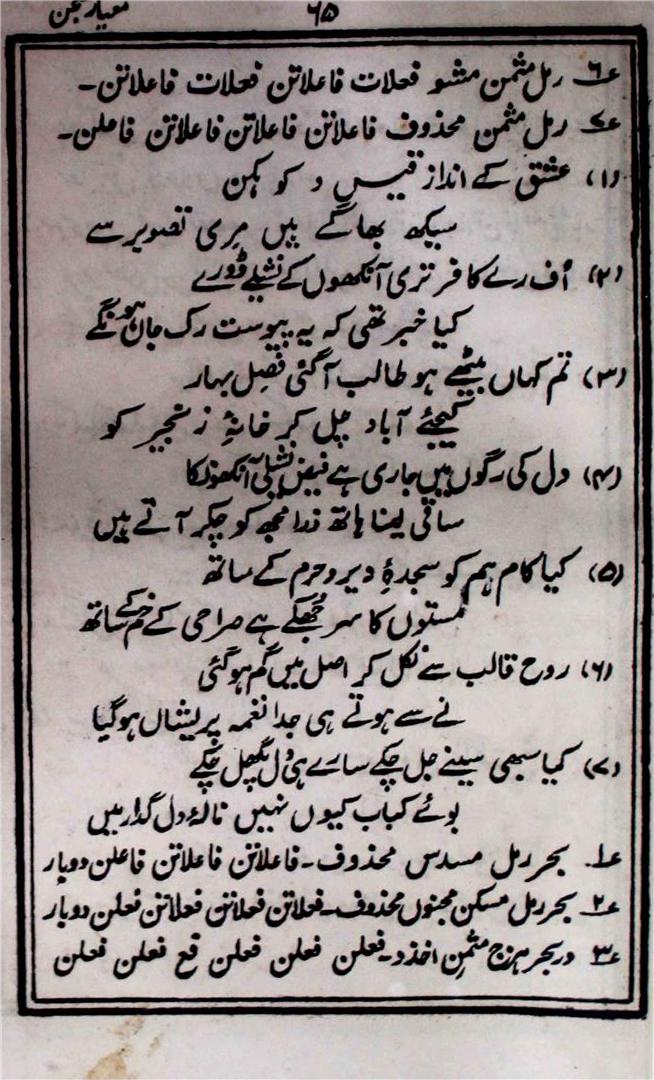 معیار سخن
۶۵
۶؎ رمل مثمن مشو فعلات فاعلاتن فعلات فاعلاتن۔
۷؎ رمل مثمن محذوف فاعلاتن فاعلاتن فاعلاتن فاعلن۔
(۱) عشق کے انداز قیس و کوہکن
سیکھ بھاگے ہیں مری تصویر سے
(۲) اُف رے کافر تری آنکھوں کے نشیلے ڈورے
کیا خبر تھی کہ یہ پیوست رگ جاں ہونگے
(۳) تم کہاں بیٹھے ہو طالب آگئی فصل بہار
کیجئے آباد چل کر خانۂ زنجیر کو
(۴) دل کی رگوں میں جاری ہے فیض نشیلی آنکھوں کا
ساقی لینا ہاتھ ذرا مجھ کو چکر آتے ہیں
(۵) کیا کام ہم کو سجدۂ دیر و حرم کے ساتھ
مستوں کا سر جھکے ہے صراحی کے خم کے ساتھ
(۶) روح قالب سے نکل کر اصل میں گم ہوگئی
نے سے ہوتے ہی جدا نغمہ پریشاں ہوگیا
(۷) کیا سبھی سینے جل چکے سارے ہی دل پگھل چکے
بوئے کباب کیوں نہیں نالۂ دل گداز میں
۱؎ بحر رمل مسدس محذوف۔ فاعلاتن فاعلاتن فاعلن دوبار
۲؎ بحر رمل مسکن مجنوں محذوف۔ فعلاتن فعلاتن فعلاتن فعلن دوبار
۳؎ در بحر ہزج مثمن اخذد۔ فعلن فعلن فعلن فع فعلن فعلن